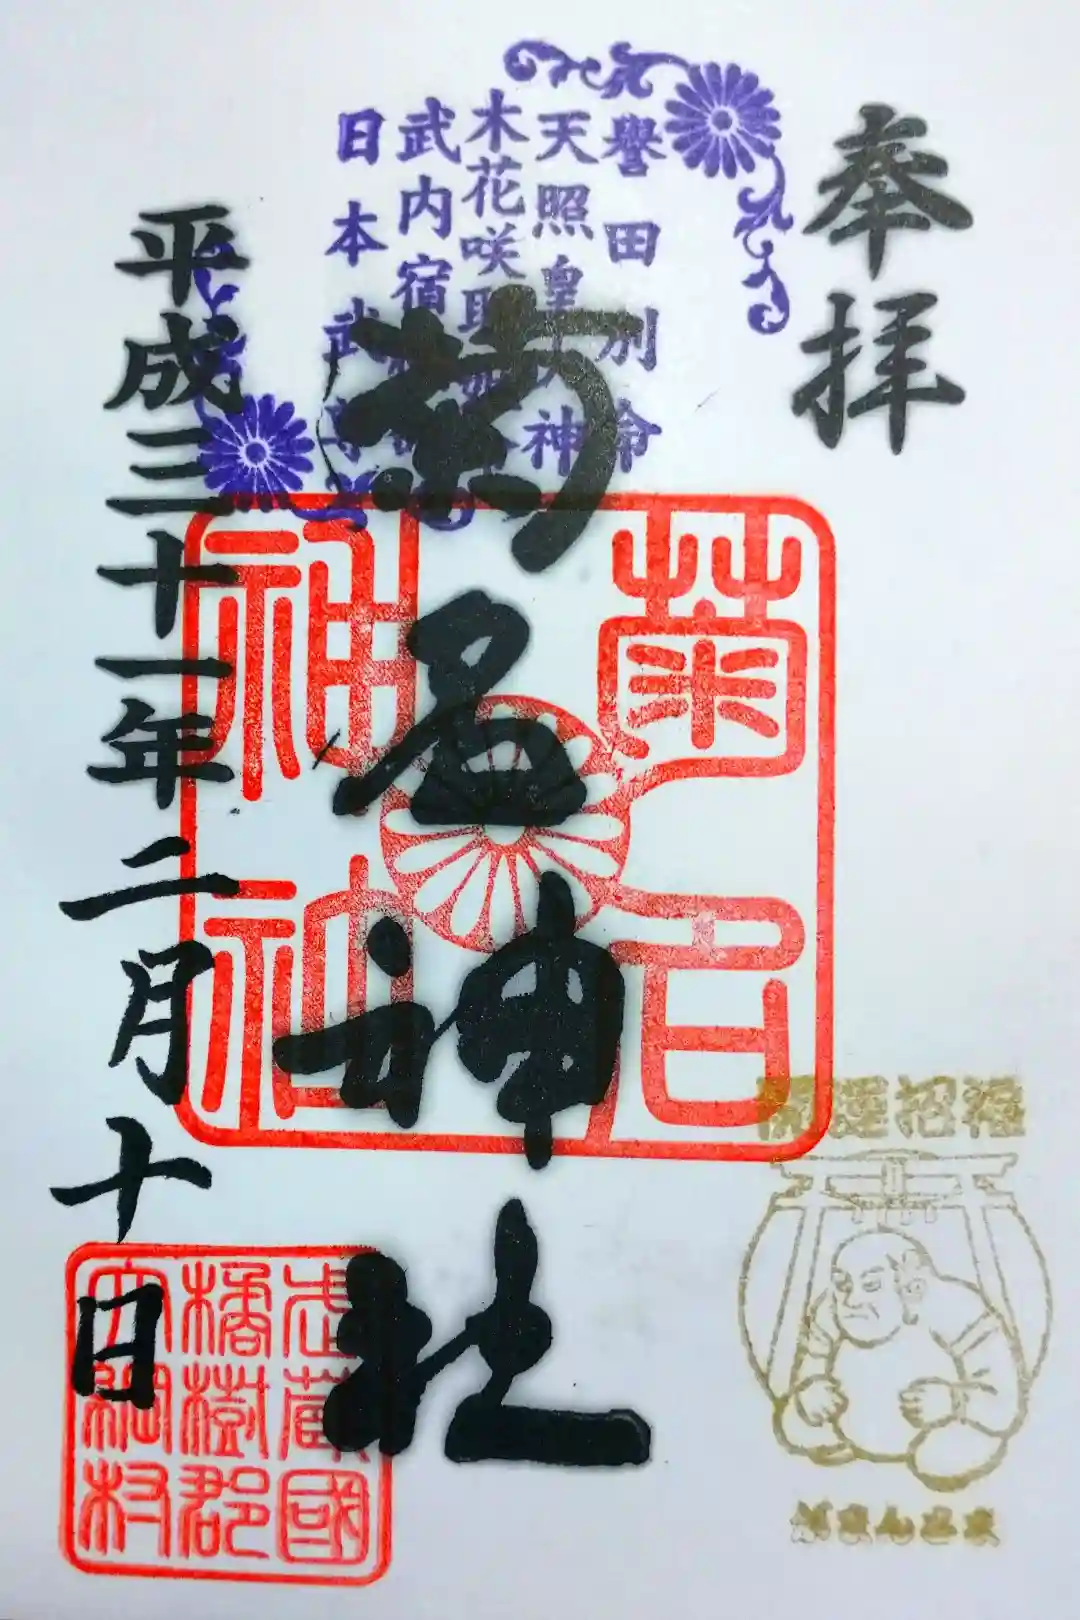 奉拝
譽田別命
天照皇大神
木花咲耶姫命
武内宿禰命
日本武尊
菊名神社
平成三十一年二月十日
菊名
神社
武蔵國
橘樹郡
大綱村
開運招福
がまんさま